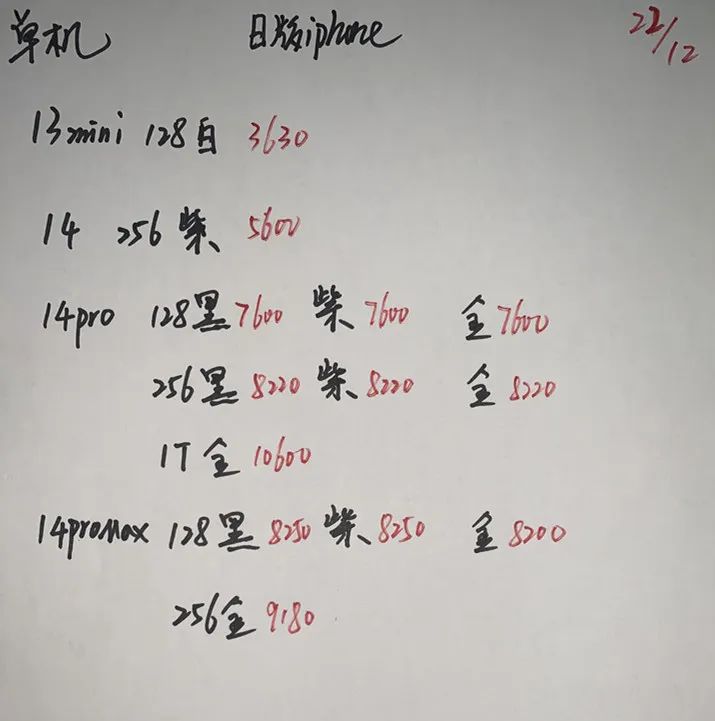 单机 日版iphone 22/12
13mini 128白 3630
14 256 柴 5600
14pro 128黑 7600 柴 7600 金 7600
256黑 8220 柴 8220 金 8220
1T 金 10600
14promax 128黑 8250 柴 8250 金 8200
256金 9180